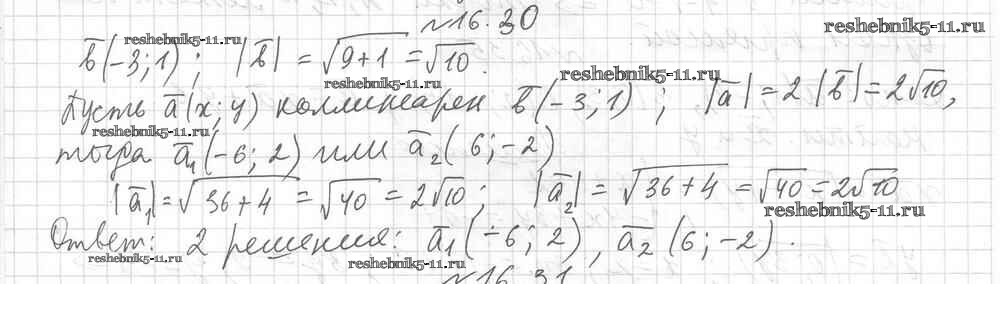 №16.30
reshebnik5-11.ru
reshebnik5-11.ru
b̅(-3;1); |b̅| = √(9+1) = √10.
reshebnik5-11.ru
reshebnik5-11.ru
Пусть a̅(x;y) коллинеарен b̅(-3;1); |a̅| = 2|b̅| = 2√10,
reshebnik5-11.ru
тогда a̅₁(-6; 2) или a̅₂(6;-2)
|a̅₁| = √(36+4) = √40 = 2√10; |a̅₂| = √(36+4) = √40 = 2√10
reshebnik5-11.ru
Ответ: 2 решения: a̅₁(-6; 2), a̅₂(6;-2).
reshebnik5-11.ru
reshebnik5-11.ru
№16.31